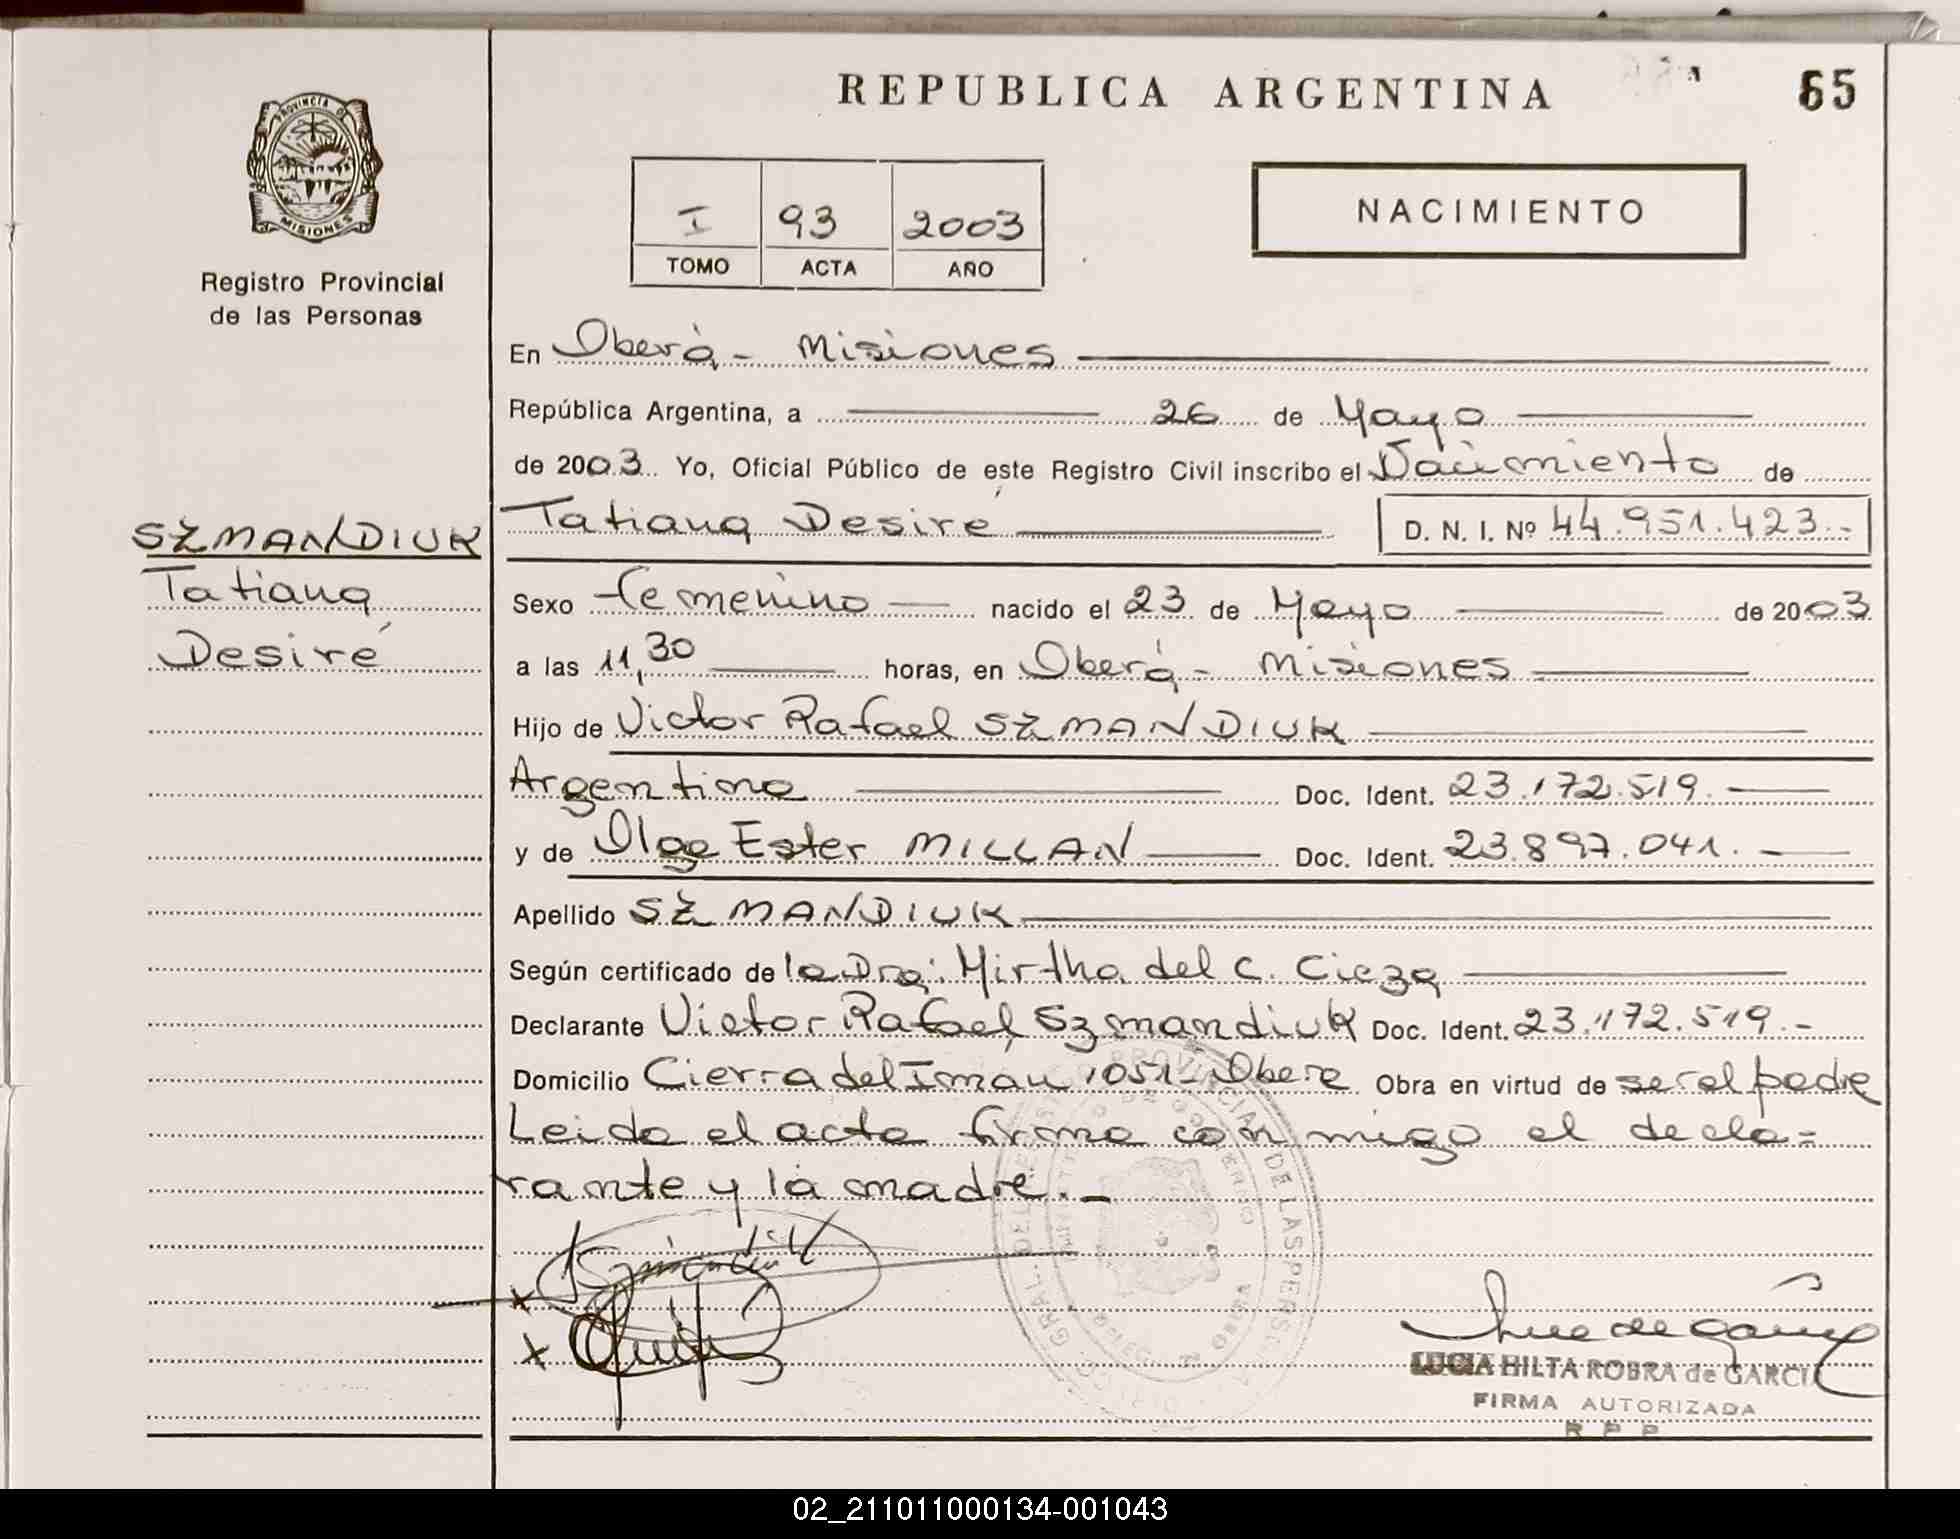 REPUBLICA ARGENTINA
65
PROVINCIA DE
MISIONES
Registro Provincial
de las Personas
I 93 2003
TOMO ACTA AÑO
NACIMIENTO
En Oberá - Misiones
República Argentina, a 26 de Mayo
de 2003 Yo, Oficial Público de este Registro Civil inscribo el Nacimiento de
Tatiana Desiré D. N. I. Nº 44.951.423.-
SZMANDIUK
Tatiana
Desiré
Sexo femenino nacido el 23 de Mayo de 2003
a las 11,30 horas, en Oberá - Misiones
Hijo de Victor Rafael SZMANDIUK
Argentino Doc. Ident. 23.172.519.
y de Olga Ester MILLAN Doc. Ident. 23.897.041.-
Apellido SZMANDIUK
Según certificado de la Dra: Mirtha del C. Cieza
Declarante Victor Rafael Szmandiuk Doc. Ident. 23.172.519.-
Domicilio Cierra del Iman 1051 - Obera Obra en virtud de ser el padre
Leida el acta firma conmigo el decla=
rante y la madre.-
LUCIA HILTA ROBRA de GARCIA
FIRMA AUTORIZADA
R P P
02_211011000134-001043